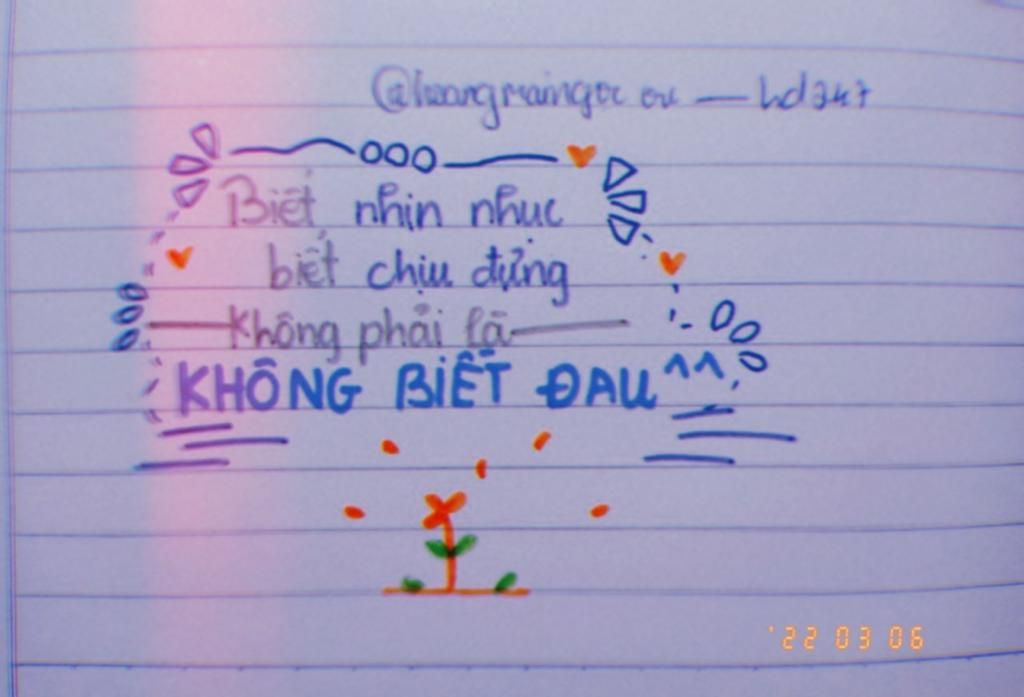 @hoangmaingoc eu — hd247
Biết nhịn nhục
biết chịu đựng
Không phải là
KHÔNG BIẾT ĐAU ^^
'22 03 06